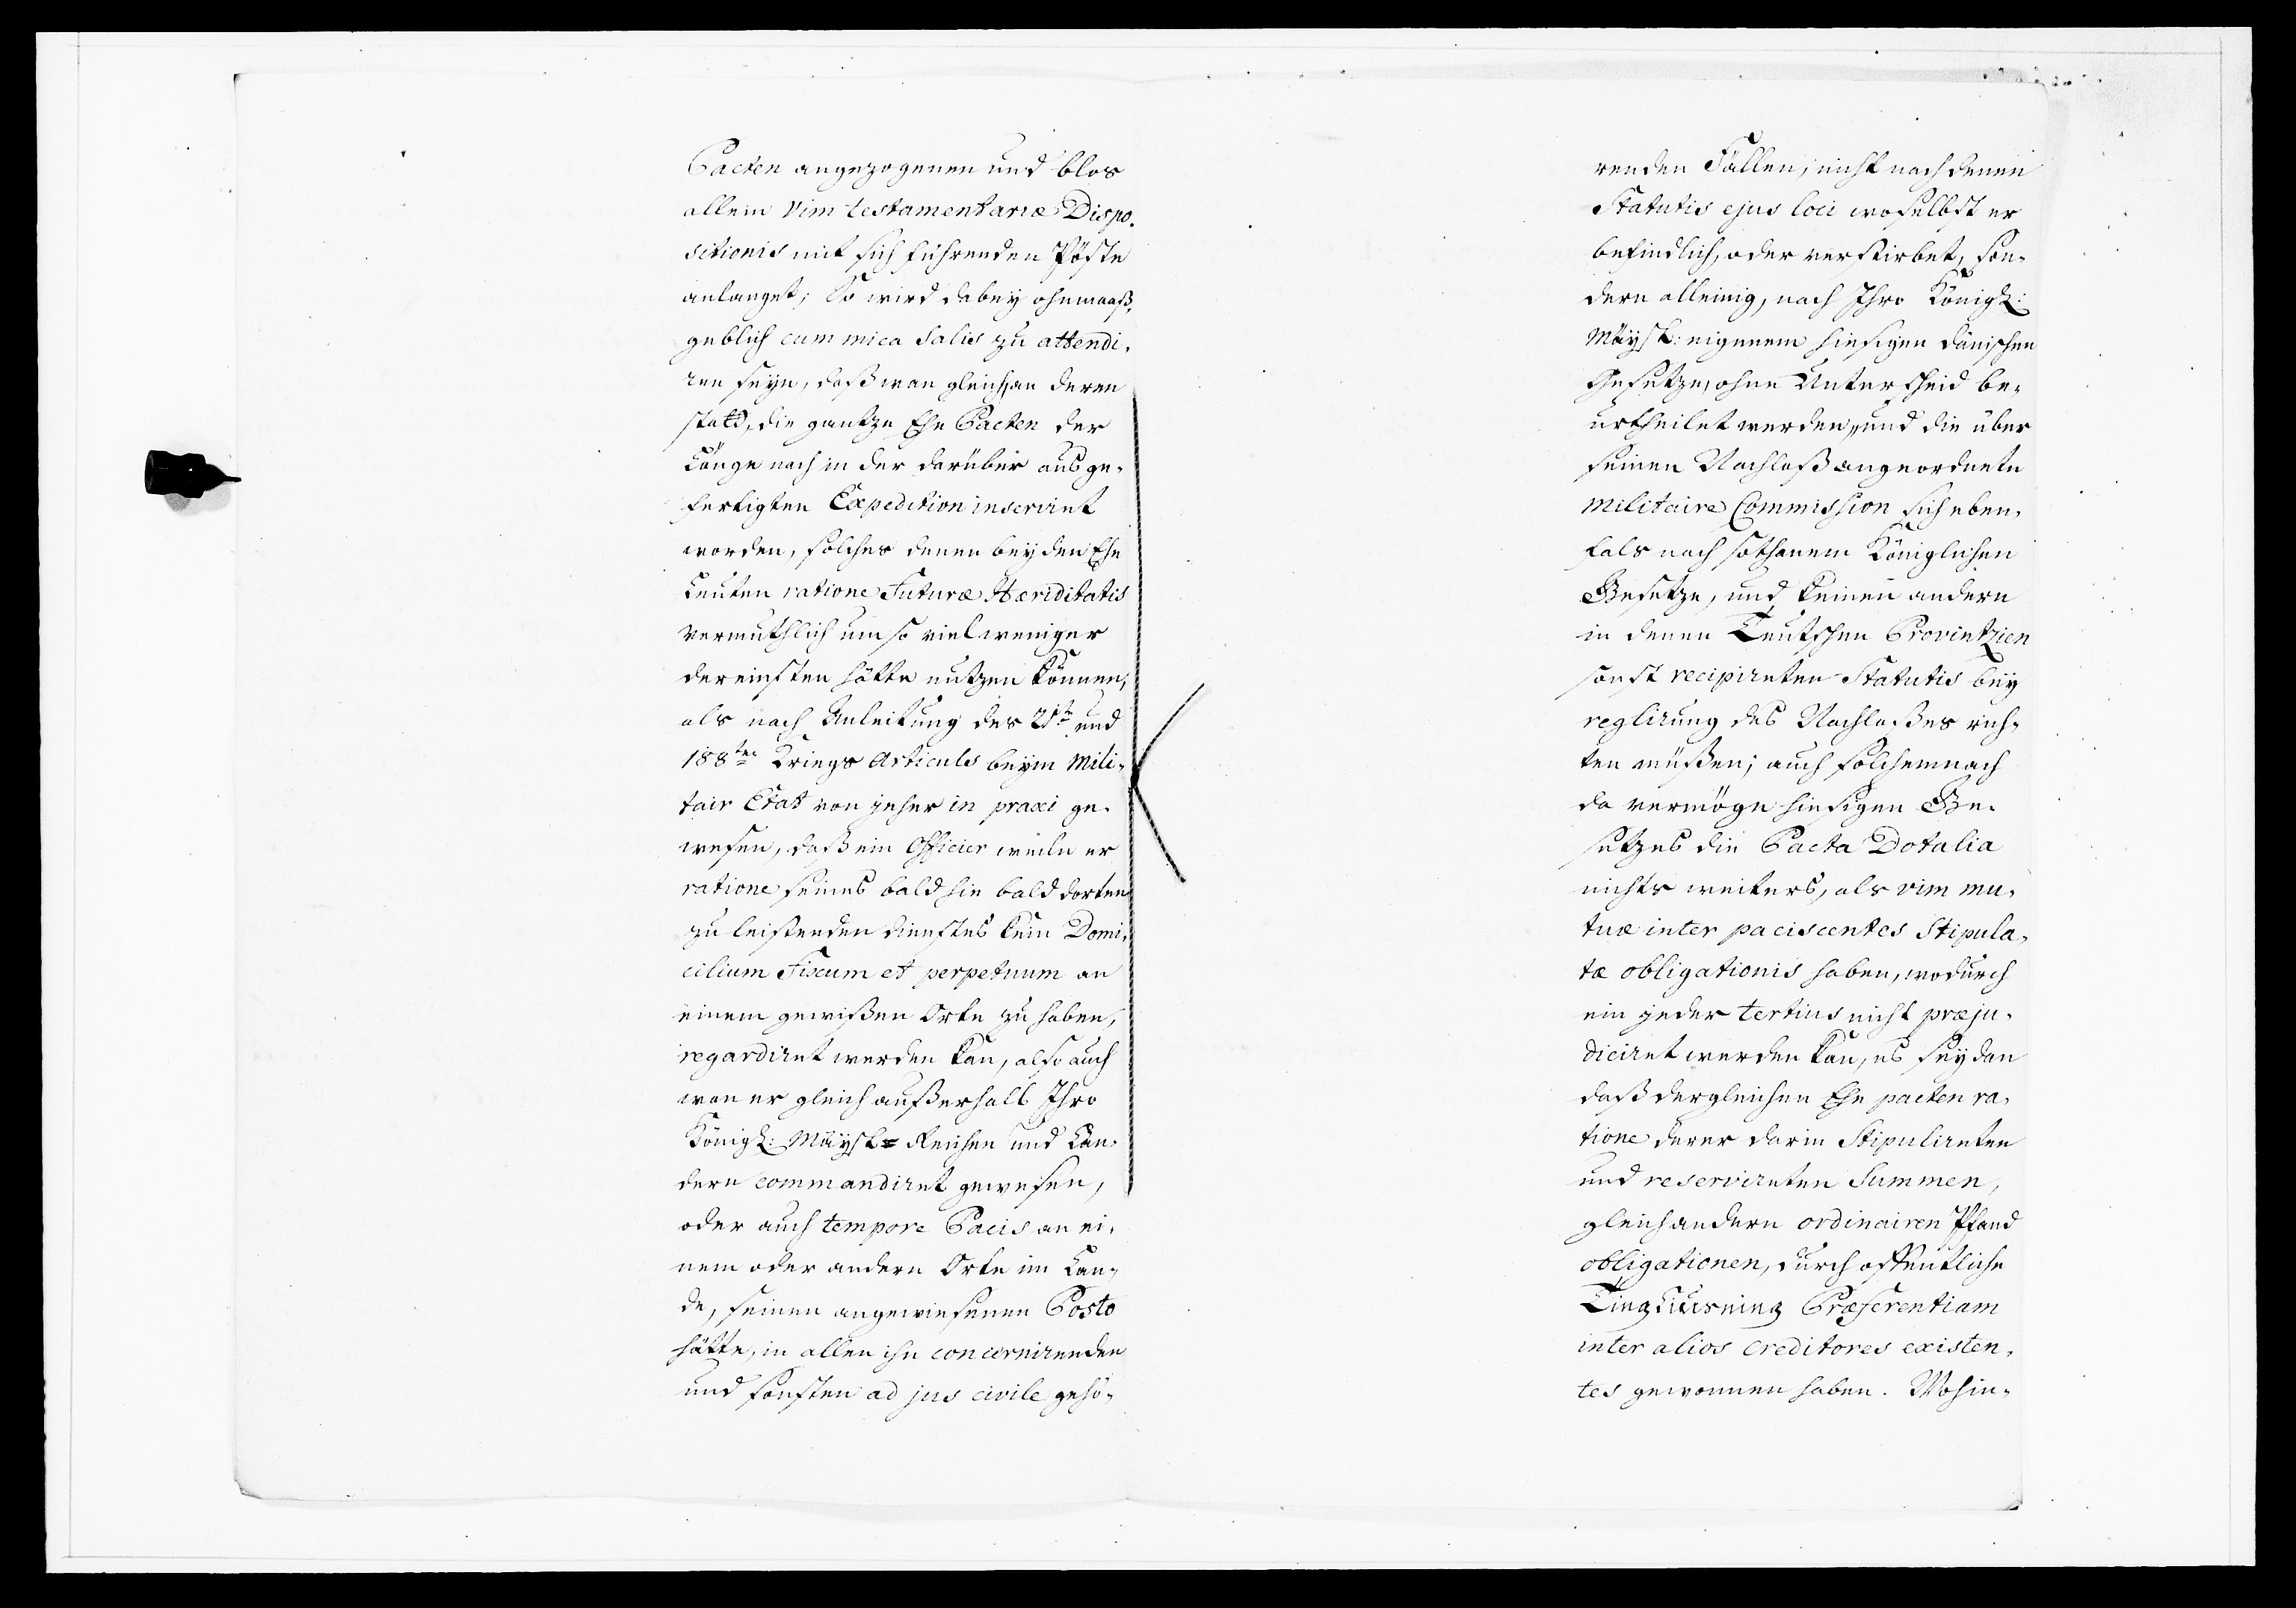 Pacten angezogenen und blos
allein vim testamentariæ Dispo-
sitionis mit sich führenden Pöste
anlanget; So wird dabey ohnmaaß-
geblich cum mica Salis zu attendi-
ren seyn, daß wan gleich, an deren
statt, die gantze Ehe Pacten der
Länge nach in der darüber ausge-
fertigten Expedition inseriret
worden, solches denen beyden Ehe
Leuten ratione Futuræ Hæriditatis
vermuthlich um so viel weniger
dereinsten hätte nutzen können,
als nach Anleitung des 21ste und
188ten Kriegs Articuls beym Mili-
tair Etat von jeher in praxi ge-
wesen, daß ein Officier weile er
ratione seines bald hie bald dorten
zu leistenden dienstes kein Domi-
cilium Fixum et perpetuum an
einem gewißen Orte zu haben,
regardiret werden kan, also auch
wan er gleich außerhalb Ihro
Königl: Mäyst= Reichen und Län-
dern commandiret gewesen,
oder auch tempore Pacis an ei-
nem oder andern Orte im Lan-
de, seinen angewiesenen Posto
hätte, in allen ihn concernirenden
und sonsten ad jus civile gehö-
renden Fällen, nicht nach denen
Statutis ejus loci woselbst er
befindlich, oder verstirbet, son-
dern alleinig, nach Ihro Königl:
Mäyst: eigenem hiesigen dänischen
Gesetze, ohne Unterscheid be-
urtheilet werden, und die über
seinen Nachlaß angeordnete
Militaire Commission sich eben-
fals nach sothanem Königlichen
Gesetze, und keinen andern
in denen Teutschen Provintzien
sonst recipirten Statutis bey
reglirung des Nachlaßes rich-
ten müßen; auch solchemnach
da vermöge hiesigen Ge-
setzes die Pacta Dotalia
nichts weiters, als vim mu-
tuæ inter paciscentes Stipula-
tæ obligationis haben, wodurch
ein jeder tertius nicht præju-
diciret werden kan, es sey dan
daß dergleichen Ehe pacten ra-
tione derer darin Stipulirten
und reservirten Summen,
gleich andern ordinairen Pfand
obligationen, durch öffentliche
Tinglæsning Præferentiam
inter alios Creditores existen-
tes gewonnen haben. Wohin-